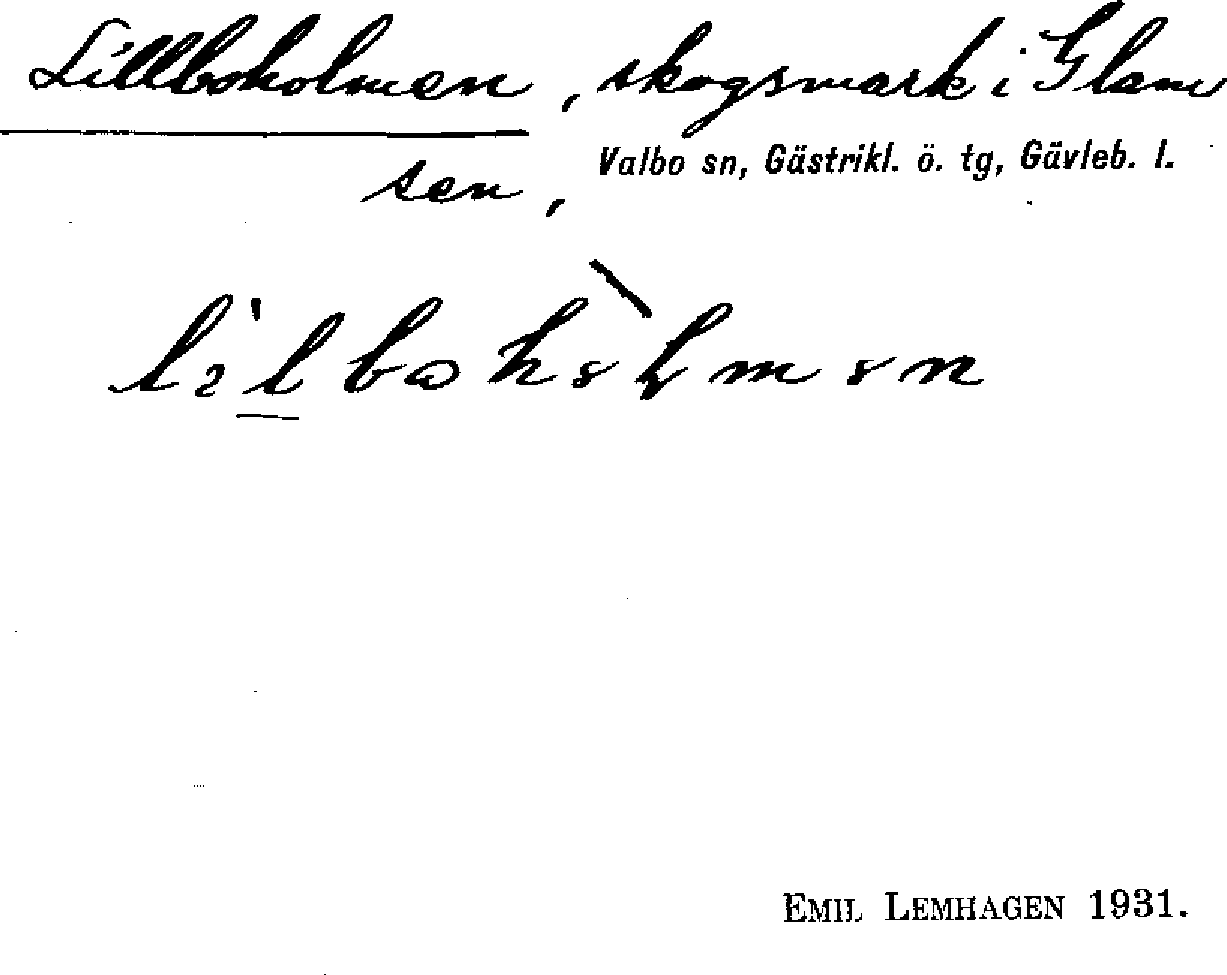 Lillboholmen, skogsmark i Glam
sen,
Valbo sn, Gästrikl. ö. tg, Gävleb. l.
EMIL LEMHAGEN 1931.